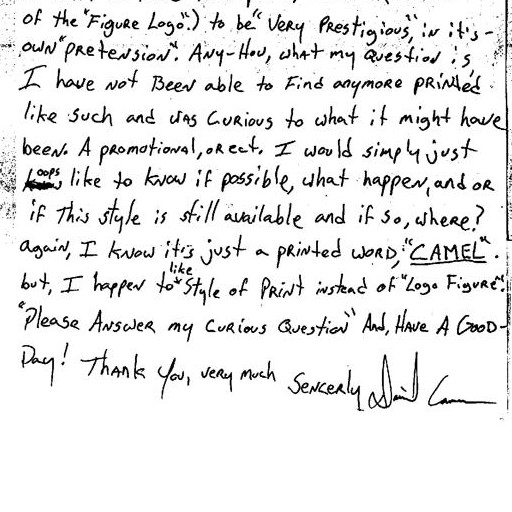 of the "Figure Logo".) to be "Very Prestigious", in it's-
own "Pretension". Any-How, what my Question is
I have not Been able to Find anymore printed
like such and was Curious to what it might have
been. A promotional, or ect. I would simply just
oops like to know if possible, what happen, and or
if This style is still available and if so, where?
again, I know it's just a printed word, "CAMEL".
but, I happen to like Style of Print instead of "Logo Figure".
"Please Answer my Curious Question" And, Have A Good-
Day! Thank You, very much Sencerly